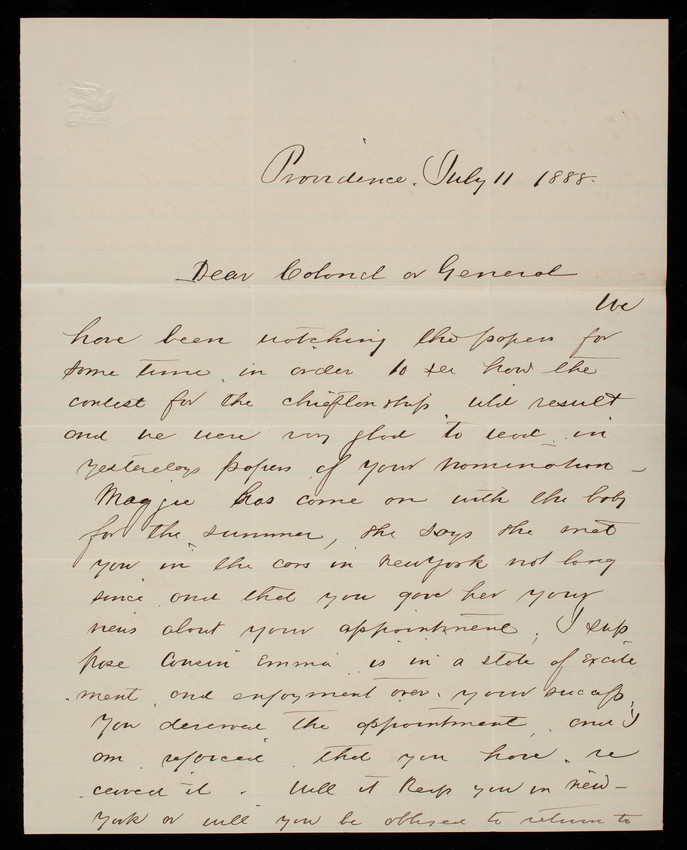 Providence. July 11 1888.
Dear Colonel or General
We
have been watching the papers for
some time in order to see how the
contest for the chieftonship wld result
and we were very glad to read in
yesterdays papers of your nomination -
Maggie has come on with the baby
for the summer, she says she met
you in the cars in New York not long
since and that you gave her your
news about your appointment, I sup
pose Cousin Emma is in a state of excite
ment and enjoyment over your success,
You deserved the appointment, and I
am rejoiced that you have re
ceived it. Will it keep you in New-
York or will you be obliged to return to